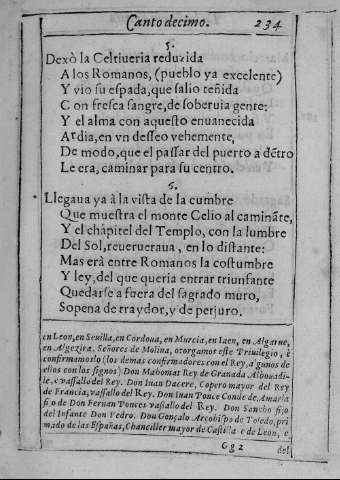 Canto decimo. 234
5.
Dexò la Celtiueria reduzida
A los Romanos, (pueblo ya excelente)
Y vio su espada, que salio teñida
Con fresca sangre, de soberuia gente:
Y el alma con aquesto enuanecida
Ardia, en vn desseo vehemente,
De modo, que el passar del puerto a dẽtro
Le era, caminar para su centro.
6.
Llegaua ya à la vista de la cumbre
Que muestra el monte Celio al caminãte,
Y el chápitel del Templo, con la lumbre
Del Sol, reuerueraua, en lo distante:
Mas erà entre Romanos la costumbre
Y ley, del que queria entrar triunfante
Quedarse a fuera del sagrado muro,
Sopena de traydor, y de perjuro.
en Leon, en Seuilla, en Cordoua, en Murcia, en Iaen, en Algarue,
en Algezira. Señores de Molina, otorgamos este Priuilegio, è
confirmamoslo (los demas confirmadores con el Rey, a gunos de
ellos con sus signos) Don Mahomat Rey de Granada Albouadi-
le, e vassallo del Rey. Don Iuan Dacere, Copero mayor del Rey
de Francia, vassallo del Rey. Don Iuan Ponce Conde de Amarla
fi o de Don Fernan Ponces vassallo del Rey. Don Sancho fijo
del Infante Don Pedro. Don Gonçalo Arcobispo de Toledo, pri
mado de las Españas, Chanciller mayor de Castilla e de Leon, e
Gg2 del